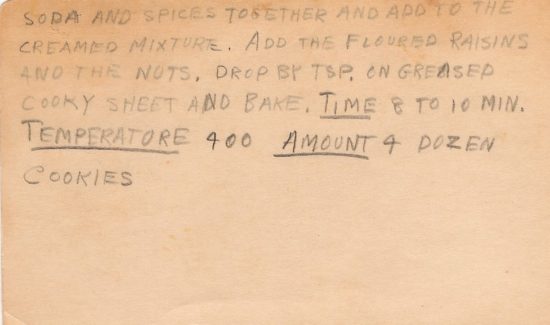 SODA AND SPICES TOGETHER AND ADD TO THE
CREAMED MIXTURE. ADD THE FLOURED RAISINS
AND THE NUTS. DROP BY TSP. ON GREASED
COOKY SHEET AND BAKE. TIME 8 TO 10 MIN.
TEMPERATORE 400 AMOUNT 4 DOZEN
COOKIES